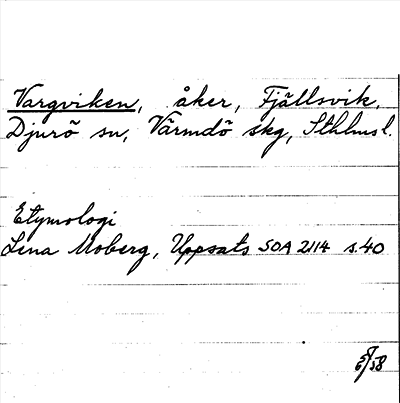 Vargviken, åker, Fjällsvik,
Djurö sn, Värmdö skg, Sthlmsl.
Etymologi
Lena Moberg, Uppsats SOA 2114 s.40